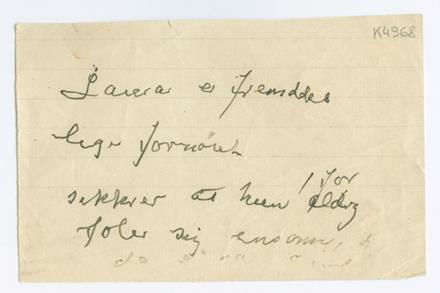 K4968
Laura er fremdeles
lige fornöiet
sekkrer at hun ! for
aldrig
föler sig ensom,